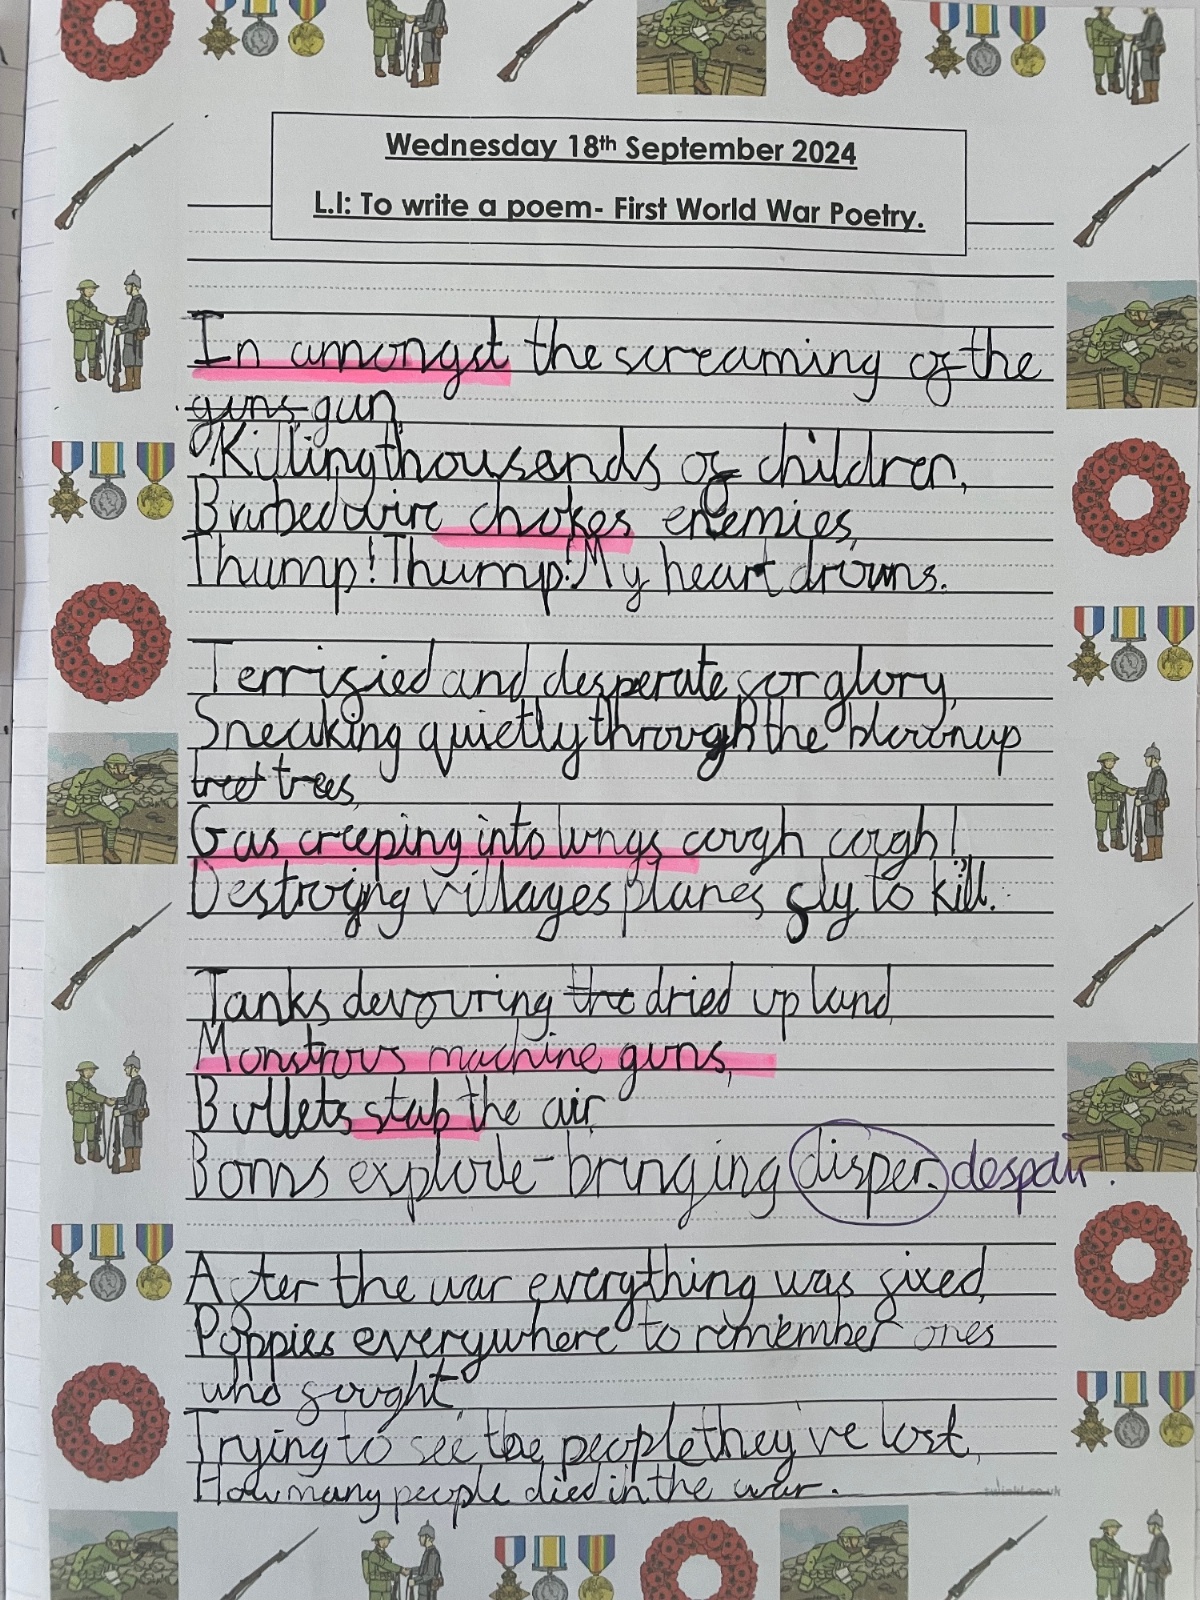 Wednesday 18th September 2024
L.I: To write a poem- First World War Poetry.
In amongst the screaming of the
guns gun,
Killing thousands of children,
Barbed wire chokes enemies,
Thump! Thump! My heart drowns.
Terrified and desperate for glory,
Sneaking quietly through the blown up
treet trees,
Gas creeping into lungs cough cough!
Destroying villages planes fly to kill.
Tanks devouring the dried up land,
Monstrous machine guns,
Bullets stab the air,
Boms explode-bringing disper. despair.
After the war everything was fixed,
Poppies everywhere to remember ones
who fought,
Trying to see the people they've lost,
How many people died in the war.
twinkl.co.uk